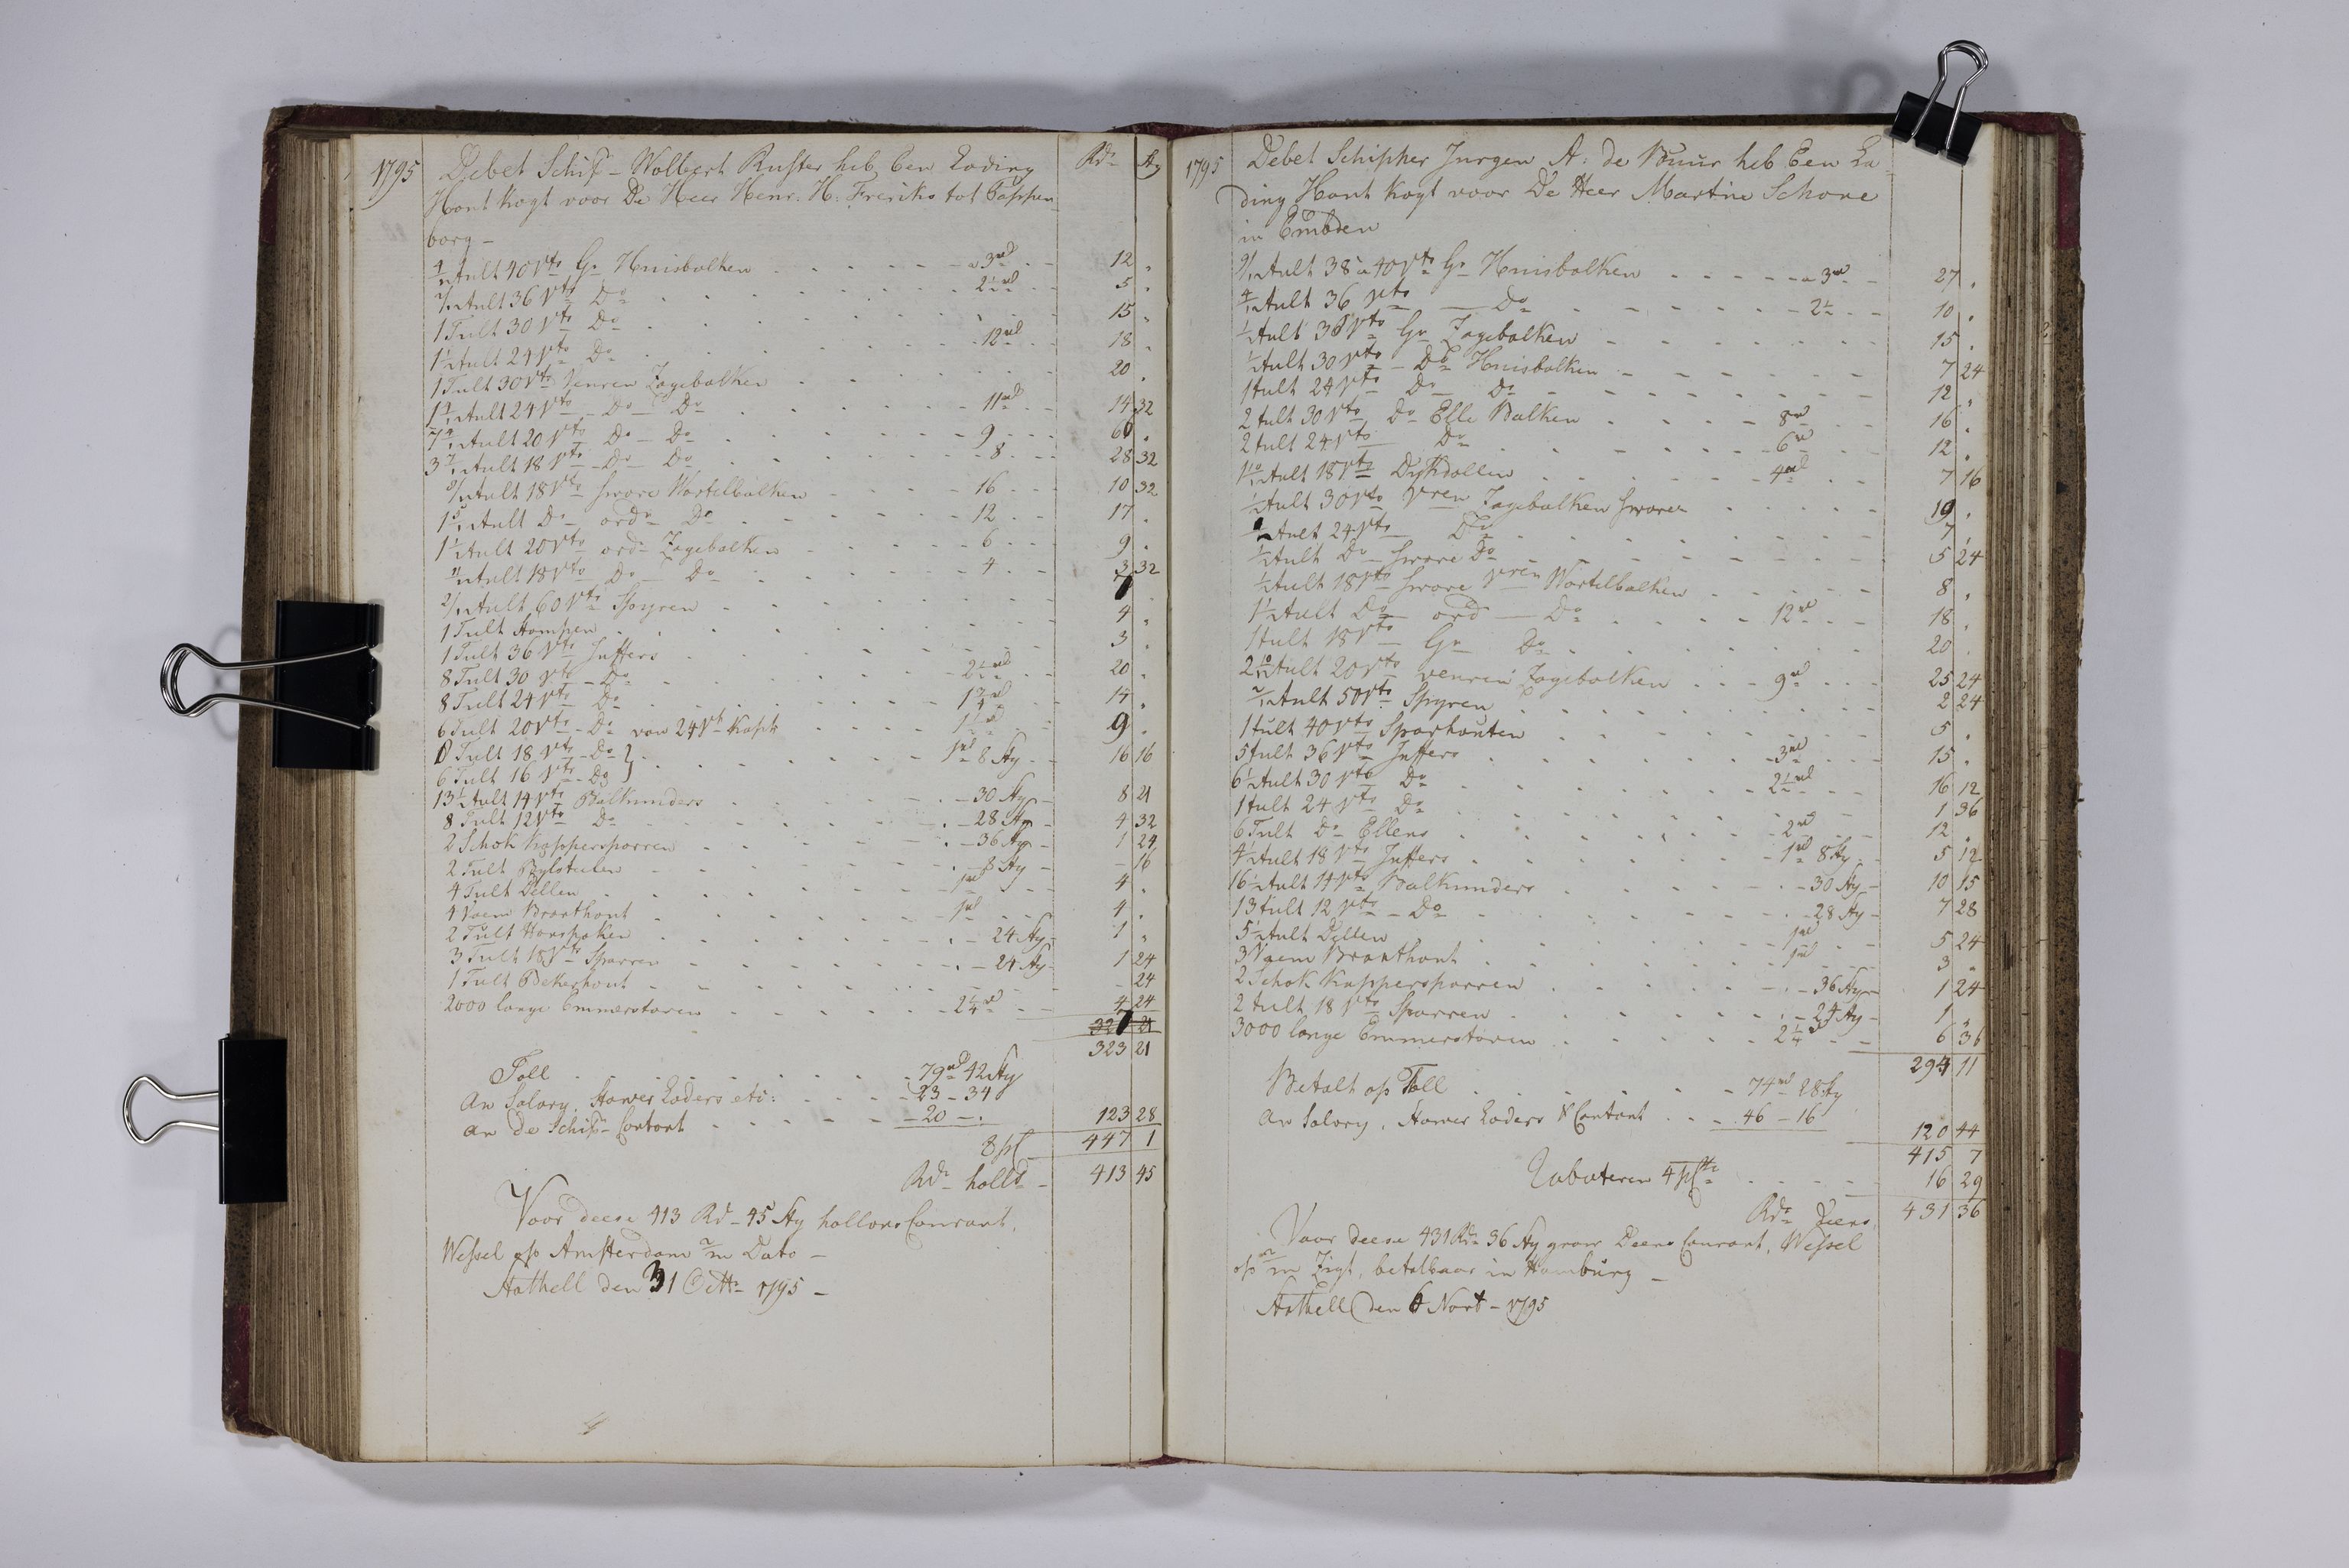 1795 Debet Schipr Wolbert Ruster heb Een Lading Rdr Sty
Hout kogt voor De Heer Henr. H: Freriks tot Pappen
borg
4/12 tult 40 vts Gr Huisbalken a 3rd 12 .
2/12 tult 36 vts Do 2½rd 5 .
1 Tult 30 vts Do 15 .
1½ tult 24 vts Do 12rd 18 .
1 Tult 30 vts Veuren Zagebalken 20 .
1 4/12 tult 24 vts Do Do 11rd 14 32
tult 20 vts Do Do 9 .
3 7/12 tult 18 vts Do Do 8 28 32
8/12 tult 18 vts sware Wortelbalken 16 10 32
1 5/12 tult Do ordr Do 12 17 .
1½ tult 20 vts ordr Zagebalken 6 9 .
11/12 tult 18 vts Do Do 4 3 32
2/12 tult 60 vts Spyren .
1 Tult Stompen 4 .
1 Tult 36 vts Juffers 3 .
8 Tult 30 vts Do 2½rd 20 .
8 Tult 24 vts Do 1¾rd 14 .
6 Tult 20 vts Do van 24 vt kapt 1½rd 9 .
Tult 18 vts Do } 1rd 8 Sty 16 16
6 Tult 16 vts Do }
13½ tult 14 vts Balkunders 30 Sty 8 21
8 Tult 12 vts Do 28 Sty 4 32
2 Schok Kappersparren 36 Sty 1 24
2 Tult 8 Sty 16
4 Tult Dellen 1rd 4 .
4 Vaem Branthout 1rd 4 .
2 Tult Hanspaken 24 Sty 1 .
3 Tult 18 vts Sparren 24 Sty 1 24
1 Tult Bekerhout 24
2000 lange Emmerstaven 2¼rd 4 24
323 21
Toll 79rd 42 Sty
an Salary, Hawer Laders etc: 23 - 34
an de Schipr Contant 20 - . 123 28
8 pCt 447 1
Rdr holld 413 45
Voor deese 413 Rd 45 Sty hollans Courant,
Wessel op Amsterdam 2/m Dato
Stathell den 31 Octr 1795
1795 Debet Schipher Jurgen A: de Buur heb Een La
ding Hout kogt voor De Heer Martin Schone
in Embden
9/12 tult 38 a 40 vts Gr Huisbalken a 3rd 27 .
4/12 tult 36 vts Do 2½ 10 .
½ tult 38 vts Gr Zagebalken 15 .
½ tult 30 vts Do Huisbalken 7 24
1 tult 24 vts Do Do 12 .
2 tult 30 vts Do Elle Balken 8rd 16 .
2 tult 24 vts Do 6rd 12 .
1 10/12 tult 18 vts Dykdallen 4rd 7 16
½ tult 30 vts vren Zagebalken sware 19 .
½ tult 24 vts Do 7 .
½ tult Do sware Do 5 24
½ tult 18 vts sware vren Wortelbalken 8 .
1½ tult Do ord Do 12rd 18 .
1 tult 18 vts Gr Do 20 .
2 10/12 tult 20 vts veuren Zagebalken 9rd 25 24
2/12 tult 50 vts Spyren 2 24
1 tult 40 vts Sparhouten 5 .
5 tult 36 vts Juffers 3rd 15 .
6½ tult 30 vts Do 2½rd 16 12
1 tult 24 vts Do 1 36
6 Tult Do Ellens 2rd 12 .
4½ tult 18 vts Juffers 1rd 8 Sty 5 12
16½ tult 14 vts Balkunders 30 Sty 10 15
13 tult 12 vts Do 28 Sty 7 28
5½ tult Dellen 1rd 5 24
3 Vaem Branthout 1rd 3 .
2 Schok Kappersparren 36 Sty 1 24
2 tult 18 vts Sparren 24 Sty 1 .
3000 lange Emmerstaven 2¼ 6 36
294 11
Betalt op Toll 74rd 28 Sty
an Salary, Hawer Laders & Contant 46 - 16
120 44
415 7
Rabateren 4 pCto 16 29
Rdr Deens 431 36
Voor deese 431 Rdr 36 Sty grow Deens Courant, Wessel
op 2/m Zigt, betalbaar in Hamburg
Stathell den 6 Novt 1795